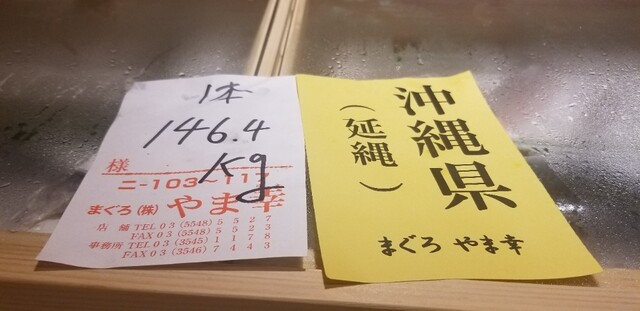 1本
146.4
Kg
様
ニ-103~117
まぐろ(株)やま幸
店 舗 TEL03(5548)5527
FAX03(5548)5523
事務所 TEL03(3545)1178
FAX03(3546)7443
沖縄県
(延縄)
まぐろ やま幸